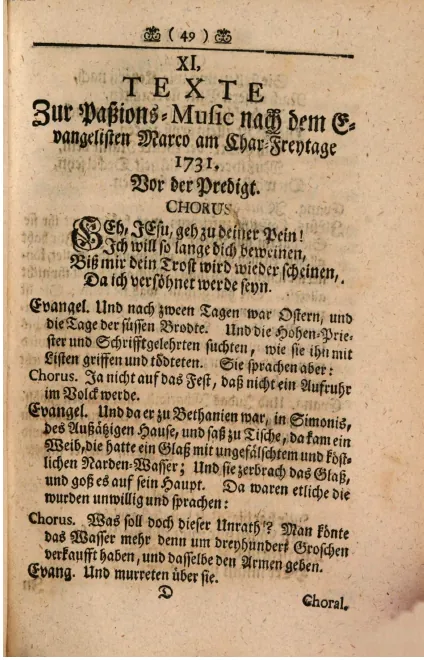 ( 49 )
XI,
TEXTE
Zur Paßions-Music nach dem E-
vangelisten Marco am Char-Freytage
1731.
Vor der Predigt.
CHORUS
GEh, JEsu, geh zu deiner Pein!
Ich will so lange dich beweinen,
Biß mir dein Trost wird wieder scheinen,
Da ich versöhnet werde seyn.
Evangel. Und nach zween Tagen war Ostern, und
die Tage der süssen Brodte. Und die Hohen-Prie-
ster und Schrifftgelehrten suchten, wie sie ihn mit
Listen griffen und tödteten. Sie sprachen aber:
Chorus. Ja nicht auf das Fest, daß nicht ein Aufruhr
im Volck werde.
Evangel. Und da er zu Bethanien war, in Simonis,
des Außätzigen Hause, und saß zu Tische, da kam ein
Weib, die hatte ein Glaß mit ungefälschtem und köst-
lichen Narden-Wasser; Und sie zerbrach das Glaß,
und goß es auf sein Haupt. Da waren etliche die
wurden unwillig und sprachen:
Chorus. Was soll doch dieser Unrath? Man könte
das Wasser mehr denn um dreyhundert Groschen
verkaufft haben, und dasselbe den Armen geben.
Evang. Und murreten über sie.
D
Choral.